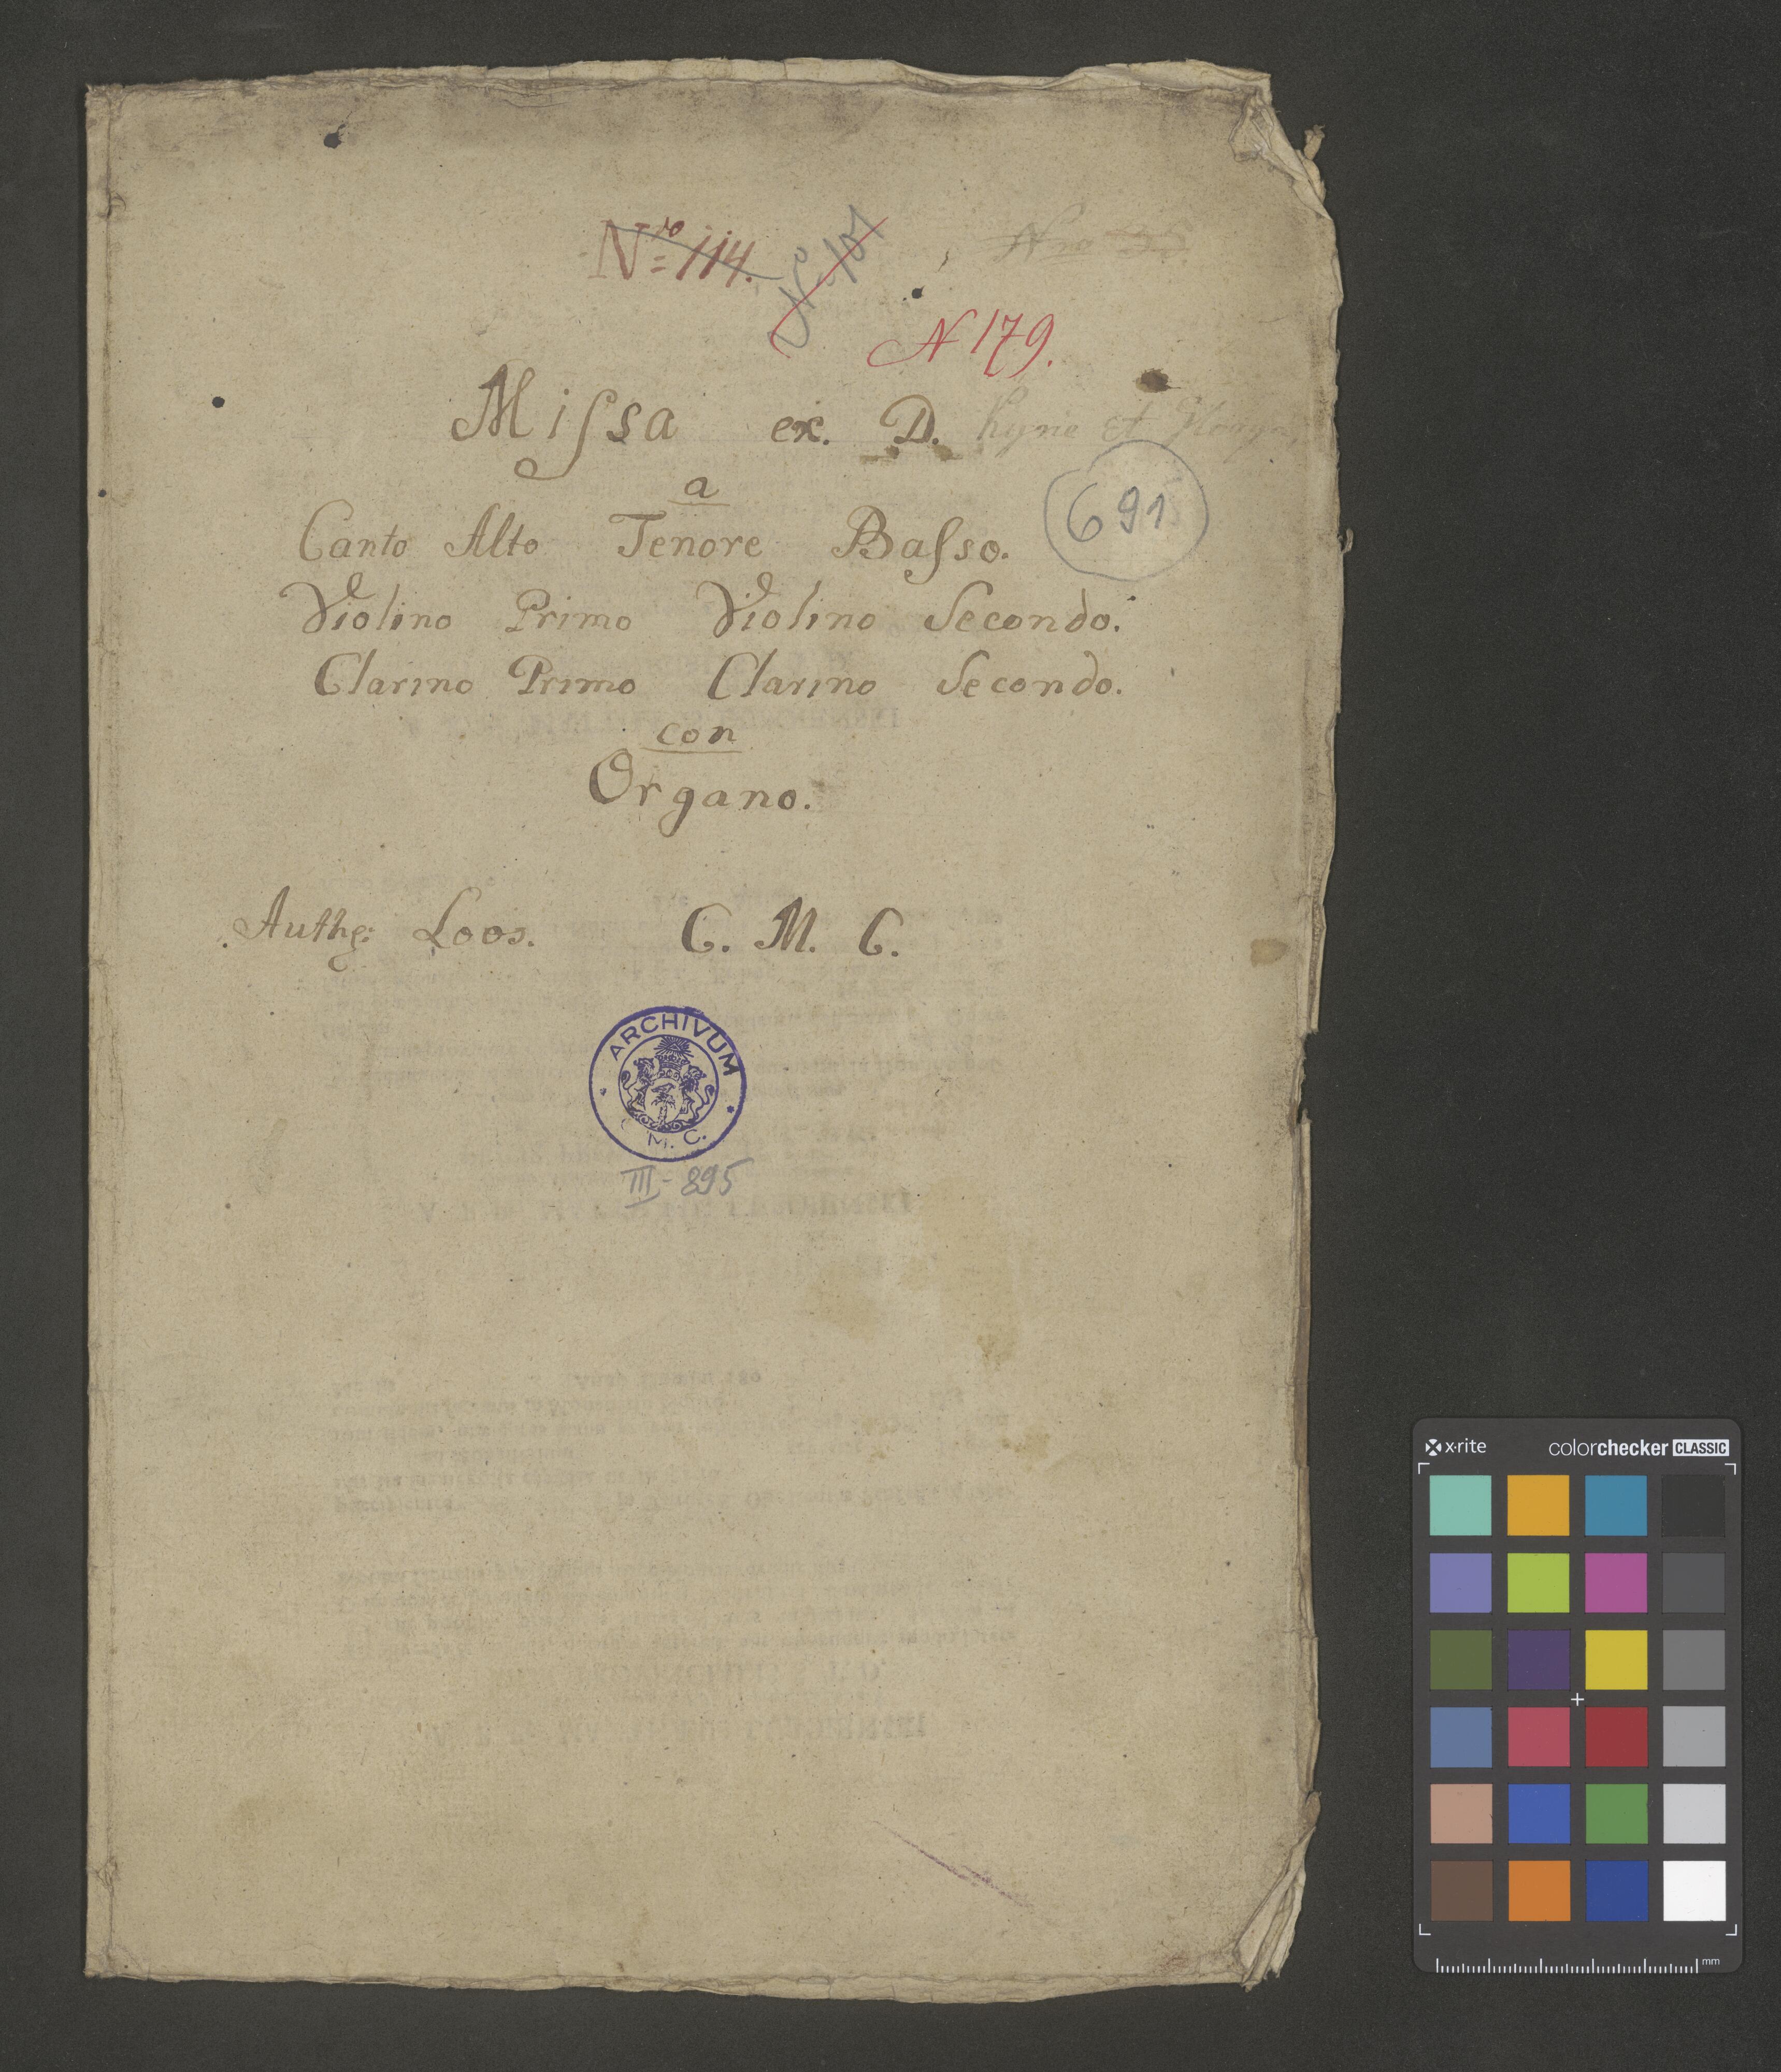 Nro 114.
No 101
Nro
N 179.
Miſsa ex. D. Kyrie et Glorya
a
691
Canto Alto Tenore Baſso.
Violino Primo Violino Secondo.
Clarino Primo Clarino Secondo.
con
Organo.
Auth: Loos. C. M. C.
ARCHIVUM
C. M. C.
III-895
x·rite colorchecker CLASSIC
mm